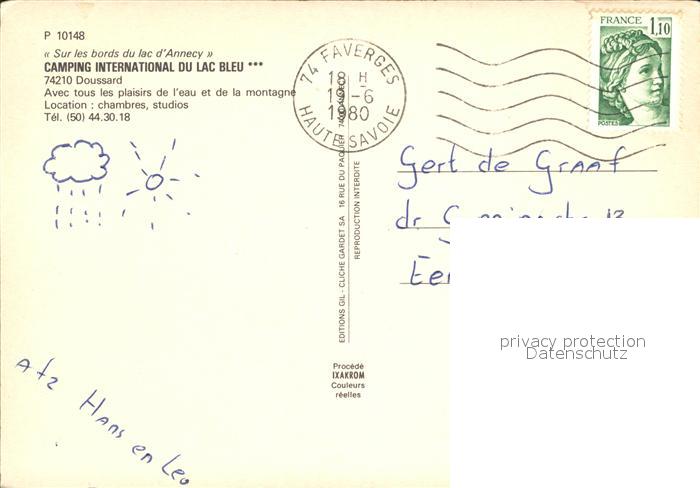 P 10148
« Sur les bords du lac d'Annecy »
CAMPING INTERNATIONAL DU LAC BLEU ***
74210 Doussard
Avec tous les plaisirs de l'eau et de la montagne
Location : chambres, studios
Tél. (50) 44.30.18
74 FAVERGES
18 H
19-6
1980
HAUTE SAVOIE
FRANCE
1,10
POSTES
Gert de Graaf
dr.
13
EDITIONS GIL - CLICHE GARDET SA 16 RUE DU PAQUIER
REPRODUCTION INTERDITE
privacy protection
Datenschutz
Procédé
IXAKROM
Couleurs
réelles
Hans en Leo